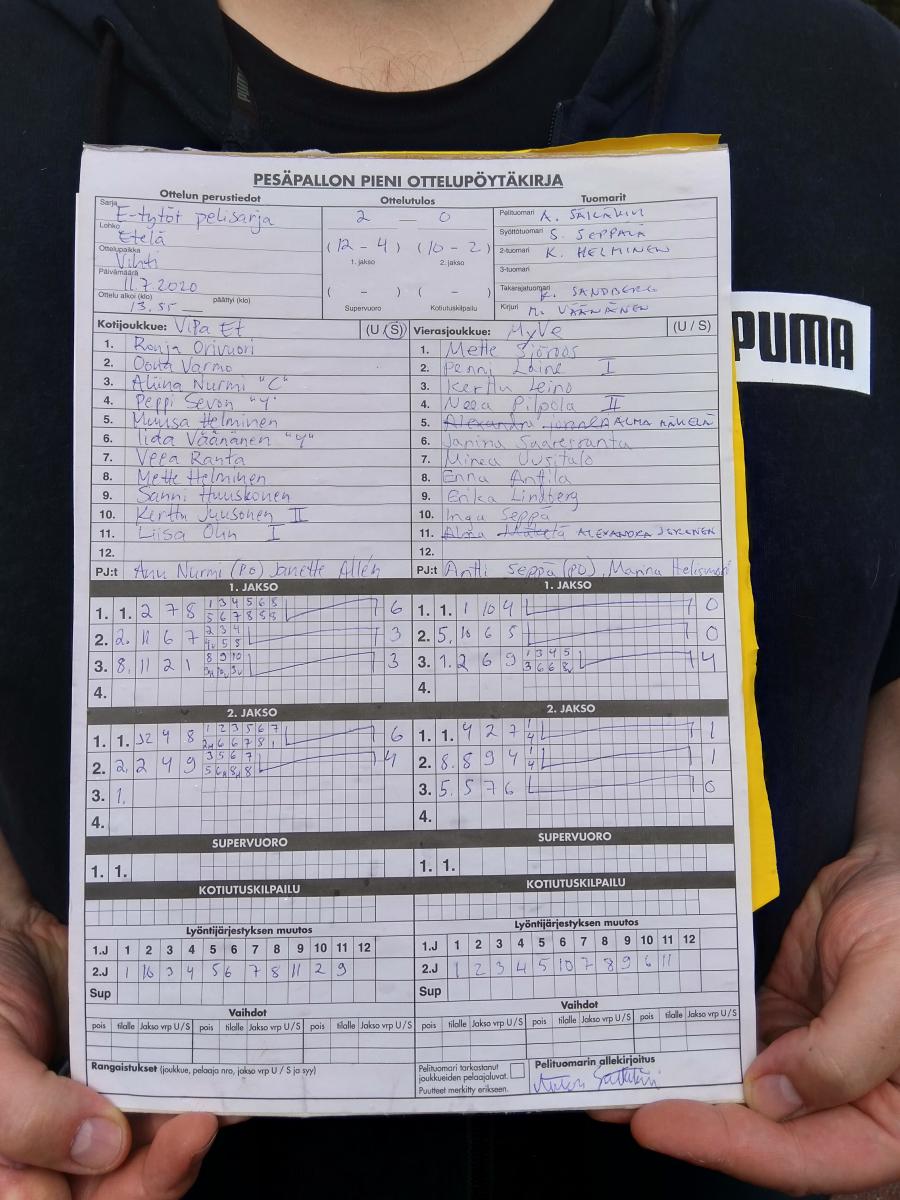 PESÄPALLON PIENI OTTELUPÖYTÄKIRJA
Ottelun perustiedot
Sarja E-tytöt pelisarja
Lohko Etelä
Ottelupaikka Vihti
Päivämäärä 11.7.2020
Ottelu alkoi (klo) 13.55 päättyi (klo)
Ottelutulos
2 — 0
(12 - 4) (10 - 2)
1. jakso 2. jakso
( - ) ( - )
Supervuoro Kotiutuskilpailu
Tuomarit
Pelituomari A.
Syöttötuomari S. SEPPÄLÄ
2-tuomari K. HELMINEN
3-tuomari
Takarajatuomari K. SANDBERG
Kirjuri M. VÄÄNÄNEN
Kotijoukkue: ViPa Et (U / S)
1. Ronja Orivuori
2. Oona Varmo
3. Aliina Nurmi "C"
4. Peppi Sevon "Y"
5. Muusa Helminen
6. Iida Väänänen "Y"
7. Veea Ranta
8. Mette Helminen
9. Sanni Huuskonen
10. Kerttu Juusonen II
11. Liisa Ohn I
12.
PJ:t Anu Nurmi (PO) Janette Allén
Vierasjoukkue: MyVe (U / S)
1. Mette Sjöroos
2. Penni Laine I
3. Kerttu Leino
4. Neea Pilpola II
5. Alexandra ALMA MÄKELÄ
6. Janina Saaresranta
7. Minea Uusitalo
8. Enna Anttila
9. Erika Lindberg
10. Inga Seppä
11. Alma Mäkelä ALEXANDRA
12.
PJ:t Antti Seppä (PO), Manna
1. JAKSO
1. 1. 2 7 8 1 3 4 5 6 8 6
5 6 7 8
2. 2. 11 6 7 2 3 4 3
5 8
3. 8. 11 2 1 8 9 10 3
4.
1. JAKSO
1. 1. 1 10 4 0
2. 5. 10 6 5 0
3. 1. 2 6 9 1 3 4 5 4
3 6 6 8
4.
2. JAKSO
1. 1. 4 8 1 2 3 5 6 7 6
6 6 7 8 1
2. 2. 2 4 9 3 5 6 7 4
5 6 8 8
3. 1.
4.
2. JAKSO
1. 1. 4 2 7 1 1
4
2. 8. 8 9 4 1 1
4
3. 5. 5 7 6 0
4.
SUPERVUORO
1. 1.
SUPERVUORO
1. 1.
KOTIUTUSKILPAILU
KOTIUTUSKILPAILU
Lyöntijärjestyksen muutos
1.J 1 2 3 4 5 6 7 8 9 10 11 12
2.J 1 10 3 4 5 6 7 8 11 2 9
Sup
Lyöntijärjestyksen muutos
1.J 1 2 3 4 5 6 7 8 9 10 11 12
2.J 1 2 3 4 5 10 7 8 9 6 11
Sup
Vaihdot
pois tilalle Jakso vrp U / S pois tilalle Jakso vrp U / S pois tilalle Jakso vrp U / S
Vaihdot
pois tilalle Jakso vrp U / S pois tilalle Jakso vrp U / S pois tilalle Jakso vrp U / S
Rangaistukset (joukkue, pelaaja nro, jakso vrp U / S ja syy)
Pelituomari tarkastanut
joukkueiden pelaajaluvat.
Puutteet merkitty erikseen.
Pelituomarin allekirjoitus
PUMA